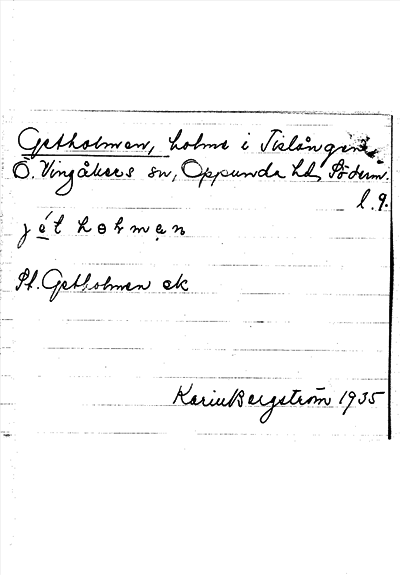 Getholmen, holme i Tislången,
Ö. Vingåkers sn, Oppunda hd, Söderm.
l. 9.
jét hɵlmən
St. Getholmen ek
Karin Bergström 1935